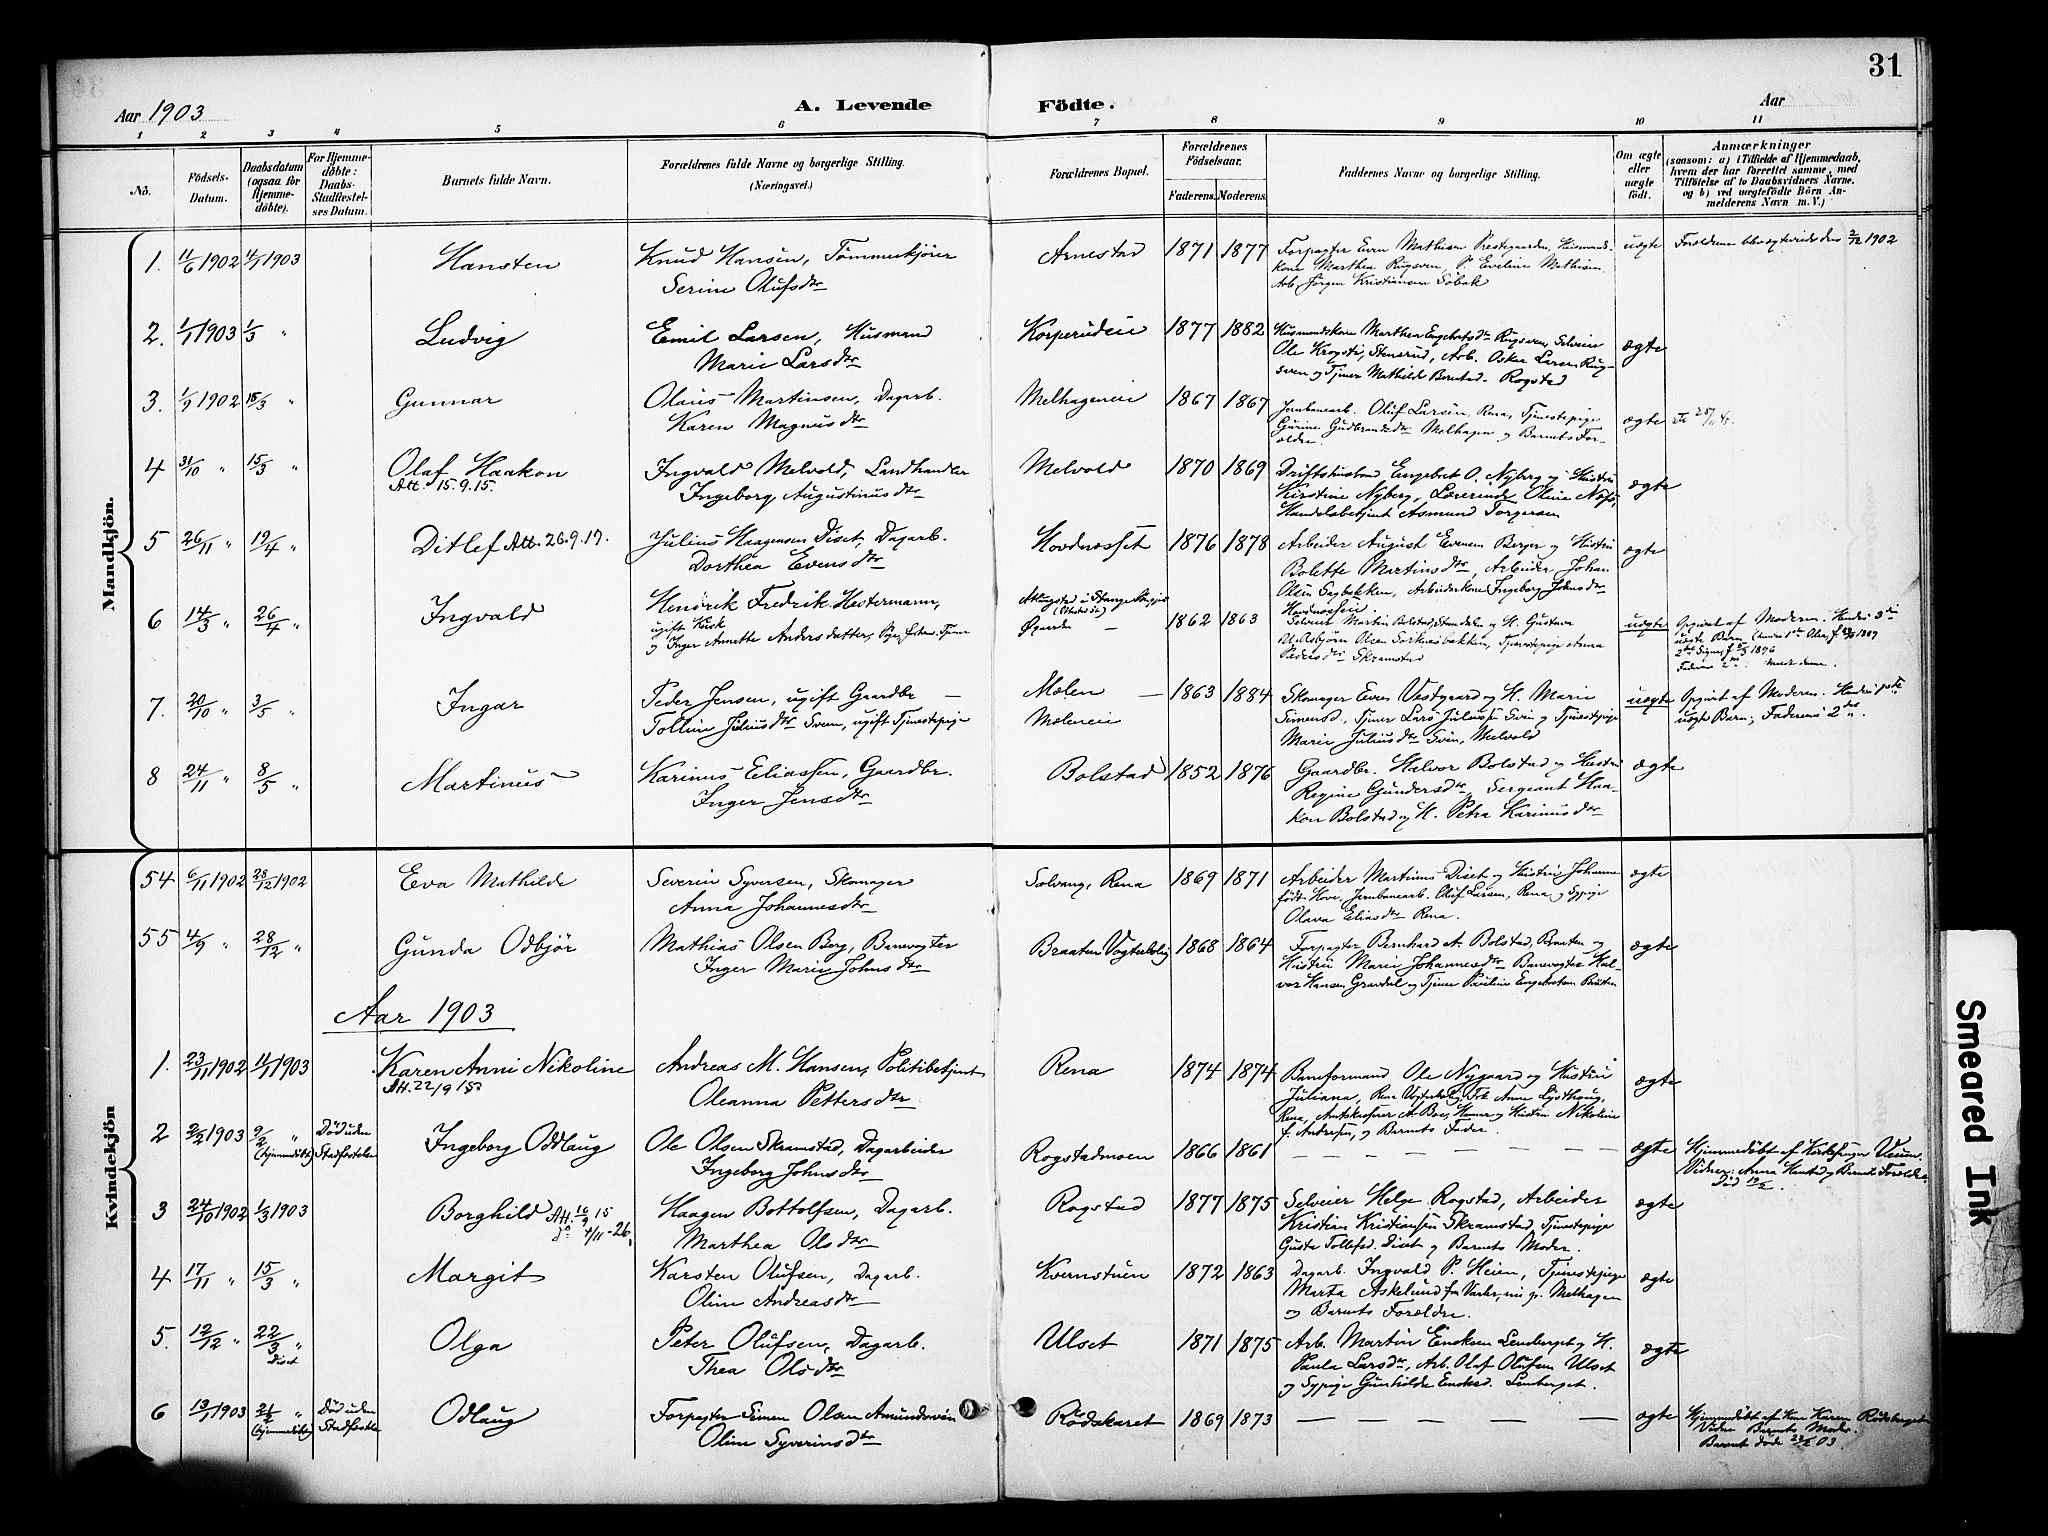 31
Aar 1903
A. Levende Födte.
Aar
1 2 3 4 5 6 7 8 9 10 11
No.
Födsels-
Datum.
Daabsdatum
(ogsaa for
Hjemme-
döbte).
For Hjemme-
döbte:
Daabs-
Stadfæstel-
ses Datum.
Barnets fulde Navn.
Forældrenes fulde Navne og borgerlige Stilling.
(Næringsvei.)
Forældrenes Bopæl.
Forældrenes
Födselsaar.
Faderens. Moderens.
Faddernes Navne og borgerlige Stilling.
Om ægte
eller
uægte
født.
Anmærkninger
(saasom: a) i Tilfælde af Hjemmedaab,
hvem der har forrettet samme, med
Tilføielse af to Daabsvidners Navne,
og b) ved uægtefödte Börn An-
melderens Navn m. V.)
Mandkjön.
1. 11/6 1902 4/1 1903 Hansten Knud Hansen, Tømmerkjører Arnestad 1871 1877 Forpagter Even Mathisen Prestegaarden, Husmands- uægte Forældrene bleve gteviede den 2/12 1902
Serine Olufsdtr kone Marthea Rugsven, P. Eveline Mathisen
Arb. Jörgen Kristiansen Sobak
2. 1/1 1903 1/3 " Ludvig Emil Larsen, Husmand Korperudeie 1877 1882 Husmandskone Marthea Engebretsdtr Rugsven, Selveier ægte
Marie Larsdtr Ole Krogsti, Stensrud, Arb. Oskar Larsen Rug-
sven og Tjener Mathilde Bernts d. Rogstad
3. 1/9 1902 15/3 " Gunnar Olaus Martinsen, Dagarb. Melhageneie 1867 1867 Jernbanearb. Oluf Larsen, Rena, Tjenestepige ægte
Karen Magnusdtr Gurine Gudbrandsdtr Melhagen og Barnets For-
ældre.
4 31/10 " 15/3 " Olaf Haakon Ingvald Melvold, Landhandler Melvold 1870 1869 Driftsbestyrer Engebret O. Nyberg og Hustru ægte
Att. 15.9.15. Ingeborg Augustinusdtr Kirstine Nyberg, Lærerinde Oline
Handelsbetjent Asmund Torgersen
5 26/11 " 19/4 " Ditlef Att. 26.9.17. Julius Haagensen Diset, Dagarb. Hovdnæsset 1876 1878 Arbeider August Evensen Berger og Hustru ægte
Dorthea Evensdtr Bolette Martinsdtr, Arbeider Johan
Olsen Sagbakken, Arbeiderkone Ingeborg Johnsdtr
Hovdnæsseie.
6 14/3 " 26/4 " Ingvald Hendrik Fredrik Hestermann, 1862 1863 Selveier Martin uægte Opgivet af Moderen. Hendes 3die
ugift Øgaarden uægte Barn
og Inger Annette Andersdatter, Pige,
Pedersdtr Skramstad
7. 20/10 " 3/5 " Ingar Peder Jensen, ugift Gaardbr. — Mælen — 1863 1884 Skomager Even Vestgaard og H. Marie uægte Opgivet af Moderen. Hendes 1ste
Tolline Juliusdtr Sveen, ugift Tjenestepige Mæleneie Simensd., Tjener Lars Juliussen Sveen og Tjenestepige uægte Barn; Faderens 2det.
Marie Juliusdtr Sveen, Melvold
8 24/11 " 8/5 " Martinus Karinus Eliassen, Gaardbr. Bolstad 1852 1876 Gaardbr. Halvor Bolstad og Hustru ægte
Inger Jensdtr Regine Gundersdtr, Sergeant Haa-
kon Bolstad og H. Petra Karinusdtr
Kvindekjön
54 6/11 1902 28/12 1902 Eva Mathilde Severin Syversen, Skomager Solvang, Rena 1869 1871 Arbeider Martinus Diset og Hustru Johanne ægte
Anna Johannesdtr født Hove, Jernbanearb. Oluf Larsen, Rena og Sypige
Olava Eliasdtr Rena.
55 4/9 " 28/12 " Gunda Odbjør Mathias Olsen Berg, Banevogter Braaten Vogterbolig 1868 1864 Forpagter Bernhard A. Bolstad, Braaten og ægte
Inger Marie Johnsdtr Hustru Marie Johannesdtr Banevogter Hal-
vor Hansen Gravdal og Tjener Pauline Engebretsen Braaten
Aar 1903
1. 23/11 1902 11/1 1903 Karen Anni Nikoline Andreas M. Hansen, Politibetjent Rena 1874 1874 Baneformand Ole Nygaard og Hustru ægte
Att. 22/9 15 Oleanna Pettersdtr Juliana, Rena Vogterbolig, Frk Anne Lysthaug,
Rena, Amtskasserer A. Boe, Hamar og Hustru Nikoline
f. Andresen, og Barnets Fader.
2 2/2 1903 9/2 " Död uden Ingeborg Oddlaug Ole Olsen Skramstad, Dagarbeider Rogstadmoen 1866 1861 — — — — — — ægte Hjemmedöbt af Kirkesanger Veum.
(hjemmedöbt) Stadfæstelse Ingeborg Johnsdtr Vidner: Anna Hanstad og Barnets Forældre.
Död 19/2.
3 24/10 1902 1/3 1903 Borghild Att. 10/9 15 Haagen Bottolfsen, Dagarb. Rogstad 1877 1875 Selveier Helge Rogstad, Arbeider ægte
do 4/11-26. Marthea Olsdtr Kristian Kristiansen Skramstad, Tjenestepige
Gusta Tollefsd. Diset og Barnets Moder.
4 17/11 " 15/3 " Margit Karsten Olufsen, Dagarb. Kvernstuen 1872 1863 Dagarb. Ingvald P. Heien, Tjenestepige ægte
Oline Andreasdtr Marta Askelund fra Vardø, nu p. Melhagen
og Barnets Forældre
5. 12/12 " 22/3 " Olga Peter Olufsen, Dagarb. Ulset 1871 1875 Arb. Martin Ericksen Lenberget og H. ægte
Diset Thea Olsdtr Paula Larsdtr, Arb. Olaf Olufsen Ulset
og Sypige Gunhilde Ericksd. Lenberget.
6 13/1 1903 21/2 " Död uden Odlaug Forpagter Simen Olsen Amundsveen Rødskaret 1869 1873 — — — — ægte Hjemmedöbt af Kone Karen Rødsberget
(hjemmedöbt) Stadfæstelse Oline Syverinsdtr Vidne Barnets Moder.
Barnet døde 23/2 03
Smeared Ink